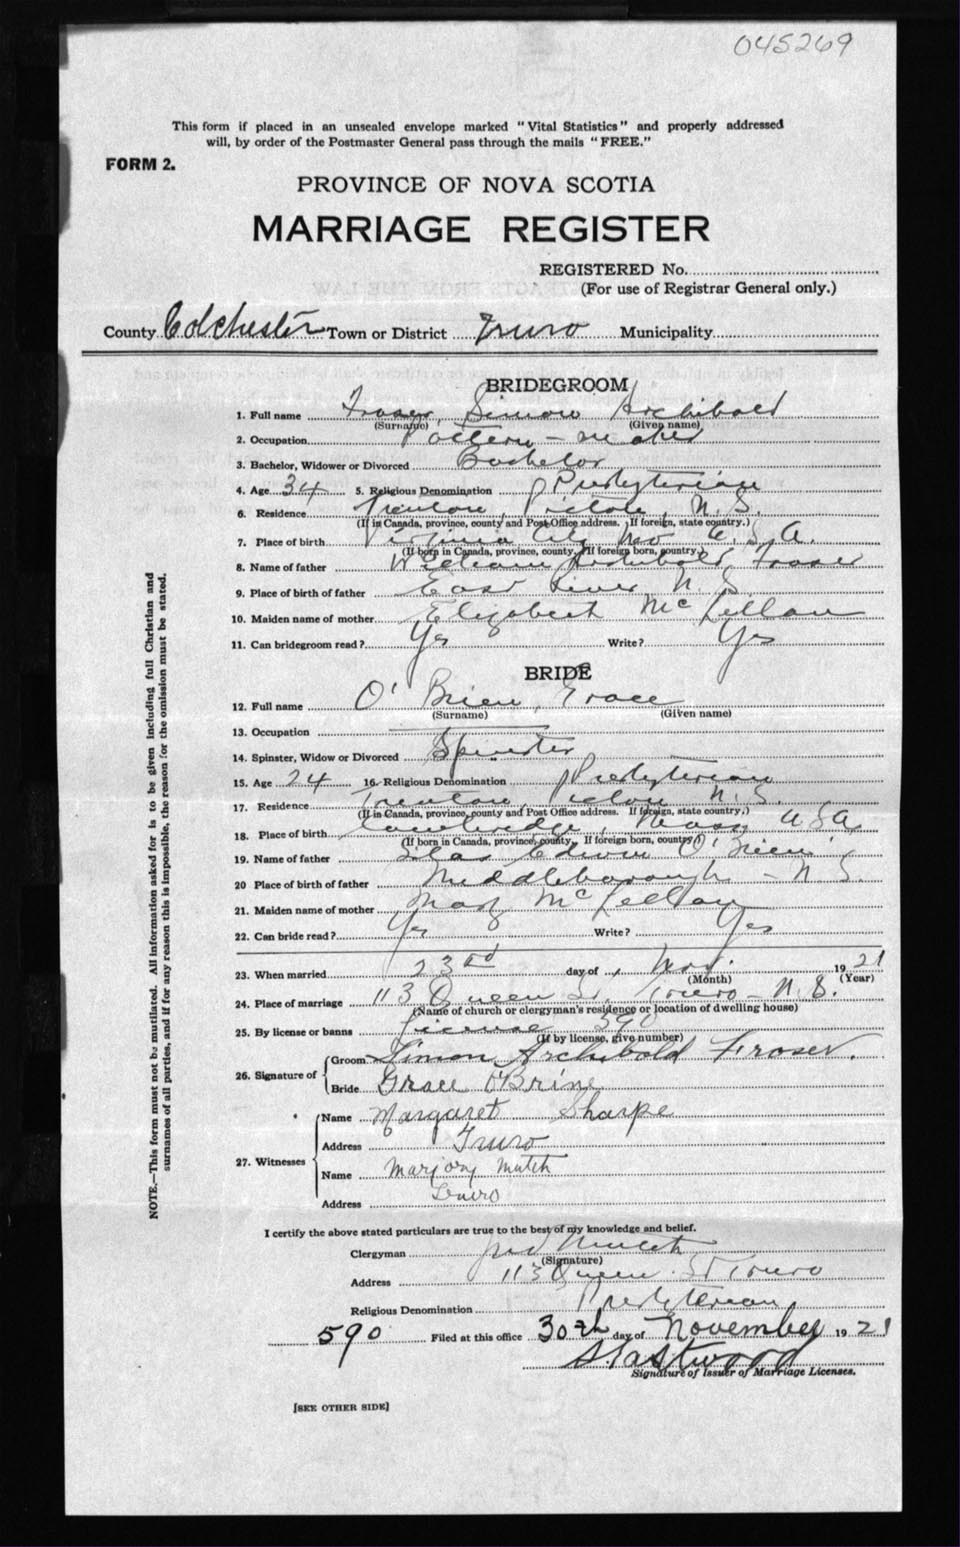 045269
This form if placed in an unsealed envelope marked "Vital Statistics" and properly addressed
will, by order of the Postmaster General pass through the mails "FREE."
FORM 2.
PROVINCE OF NOVA SCOTIA
MARRIAGE REGISTER
REGISTERED No.
(For use of Registrar General only.)
County Colchester Town or District Truro Municipality
BRIDEGROOM
1. Full name Fraser, Simon Archibald
(Surname) (Given name)
2. Occupation Pattern-maker
3. Bachelor, Widower or Divorced Bachelor
4. Age 34 5. Religious Denomination Presbyterian
6. Residence Trenton, Pictou, N.S.
(If in Canada, province, county and Post Office address. If foreign, state country.)
7. Place of birth Virginia City U.S.A.
(If born in Canada, province, county. If foreign born, country.)
8. Name of father William Archibald Fraser
9. Place of birth of father East River N.S.
10. Maiden name of mother Elizabeth McLellan
11. Can bridegroom read? Yes Write? Yes
BRIDE
12. Full name O'Brien, Grace
(Surname) (Given name)
13. Occupation
14. Spinster, Widow or Divorced Spinster
15. Age 24 16. Religious Denomination Presbyterian
17. Residence Trenton, Pictou N.S.
(If in Canada, province, county and Post Office address. If foreign, state country.)
18. Place of birth Cambridge, Mass USA
(If born in Canada, province, county. If foreign born, country.)
19. Name of father Silas Edwin O'Brien
20 Place of birth of father Middleborough - N.S.
21. Maiden name of mother Mary McLellan
22. Can bride read? Yes Write? Yes
23. When married 23rd day of Nov. 1921
(Month) (Year)
24. Place of marriage 113 Queen St. Truro - N.S.
(Name of church or clergyman's residence or location of dwelling house)
25. By license or banns License 590
(If by license, give number)
26. Signature of Groom Simon Archibald Fraser.
Bride Grace O'Brine
27. Witnesses Name Margaret Sharpe
Address Truro
Name Marjory Mutch
Address Truro
I certify the above stated particulars are true to the best of my knowledge and belief.
Clergyman Mutch
(Signature)
Address 113 Queen St Truro
Religious Denomination Presbyterian
590 Filed at this office 30th day of November 1921
Signature of Issuer of Marriage Licenses.
[SEE OTHER SIDE]
NOTE.—This form must not be mutilated. All information asked for is to be given including full Christian and
surnames of all parties, and if for any reason this is impossible, the reason for the omission must be stated.